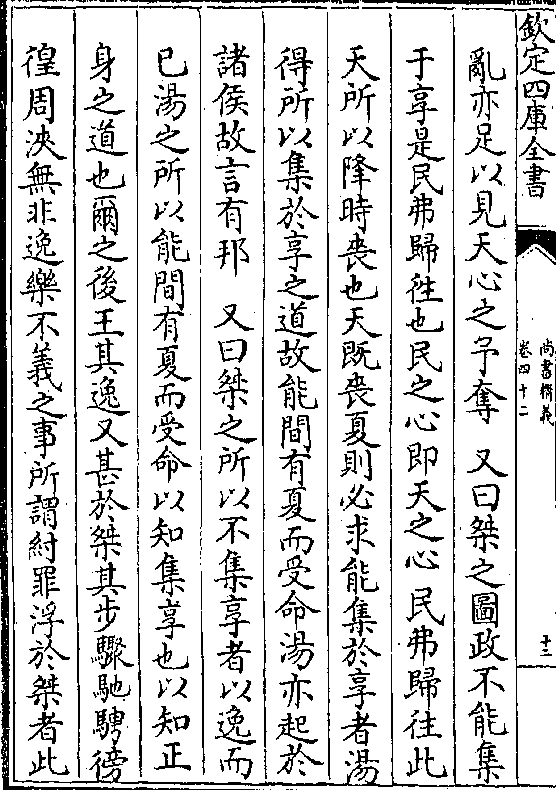 欽定四庫全書
尚書精義
卷四十二
十三
亂亦足以見天心之予奪　又曰桀之圖政不能集
于享是民弗歸徃也民之心即天之心民弗歸往此
天所以降時喪也天既喪夏則必求能集於享者湯
得所以集於享之道故能間有夏而受命湯亦起於
諸侯故言有邦　又曰桀之所以不集享者以逸而
已湯之所以能間有夏而受命以知集享也以知正
身之道也爾之後王其逸又甚於桀其步驟馳騁徬
徨周浹無非逸樂不義之事所謂紂罪浮於桀者此